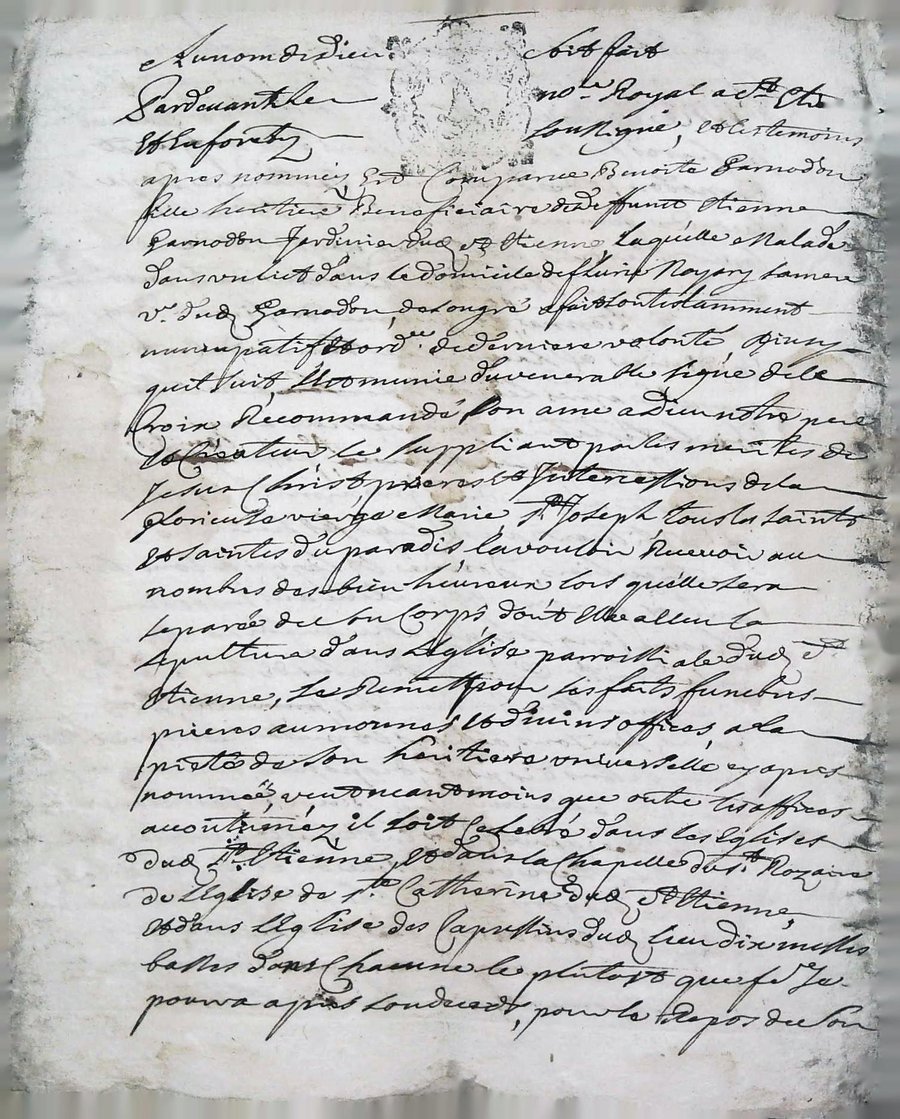 Au nom de Dieu soit fait
Pardevant le no.re Royal a St Eti
et en forests soussigné, et les temoins
apres nommés, Est Comparue Benoite Parnodon
fille heritiere Beneficiaire de deffunt Etienne
Parnodon Jardinier dud St Etienne, Laquelle Malade
dans un lict dans le domicile de fleurie Royary sa mere
v.e dud Parnodon, de son gré a fait son testamment
nuncupatif et ord.ce de derniere volonté, Ainsy
quil suit, S'et munie du venerable signe de la
Croix Recommandé son ame a Dieu notre pere
et Créateur le suppliant par les merites de
Jesus Christ prieres et Intercessions de la
glorieuse vierge Marie St Joseph tous les saints
et saintes du paradis la vouloir Recevoir au
nombre des bien héureux lors quelle sera
separée de son Corps dont elle a eleu la
sepulture dans L'églisé parroissiale dud St
Etienne, Se Remet pour ses faits funebres
prieres aumounes et divins offices, a la
pieté de son héritiere universelle cy apres
nommée, veut neantmoins que outre les offices
accoutumés il soit Celebré dans les Eglises
dud St Etiénne, et dans la Chapelle du St Rozaire
de L'eglise de Ste Catherine dud St Etienne,
et dans L'eglise des Capussins dud lieu dix messes
basses dans Chacune le plutost que fe.re Se
pourra apres son deceds, pour le Repos de son